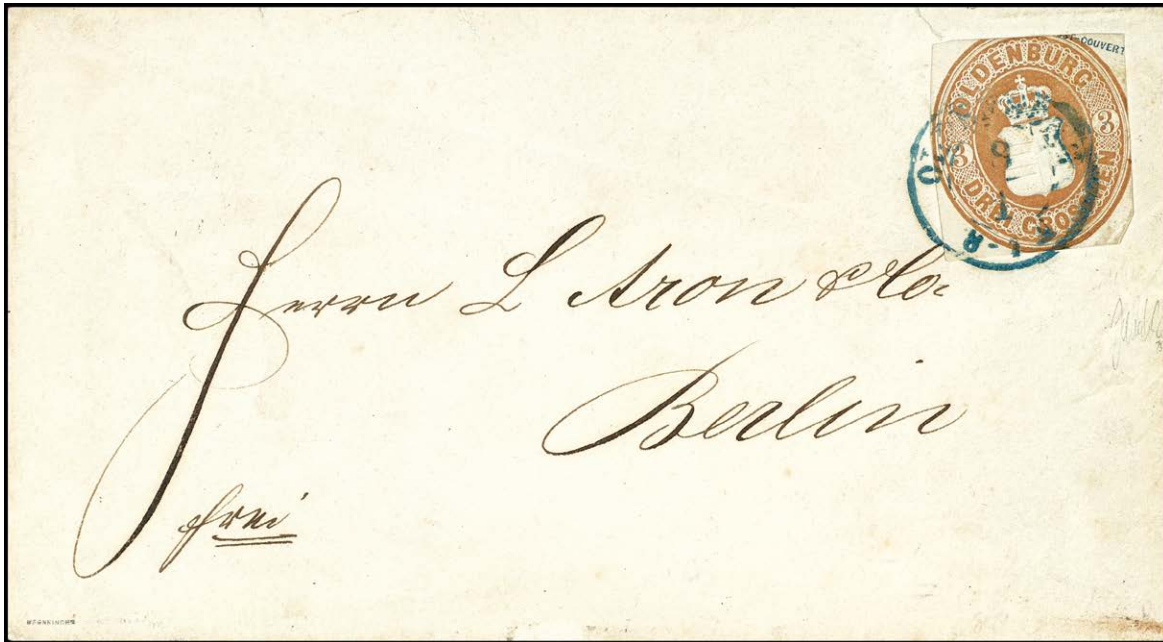 COUVERT
OLDENBURG
3 3
DREI GROSCHEN
Herrn L Aron & Co.
Berlin
frei